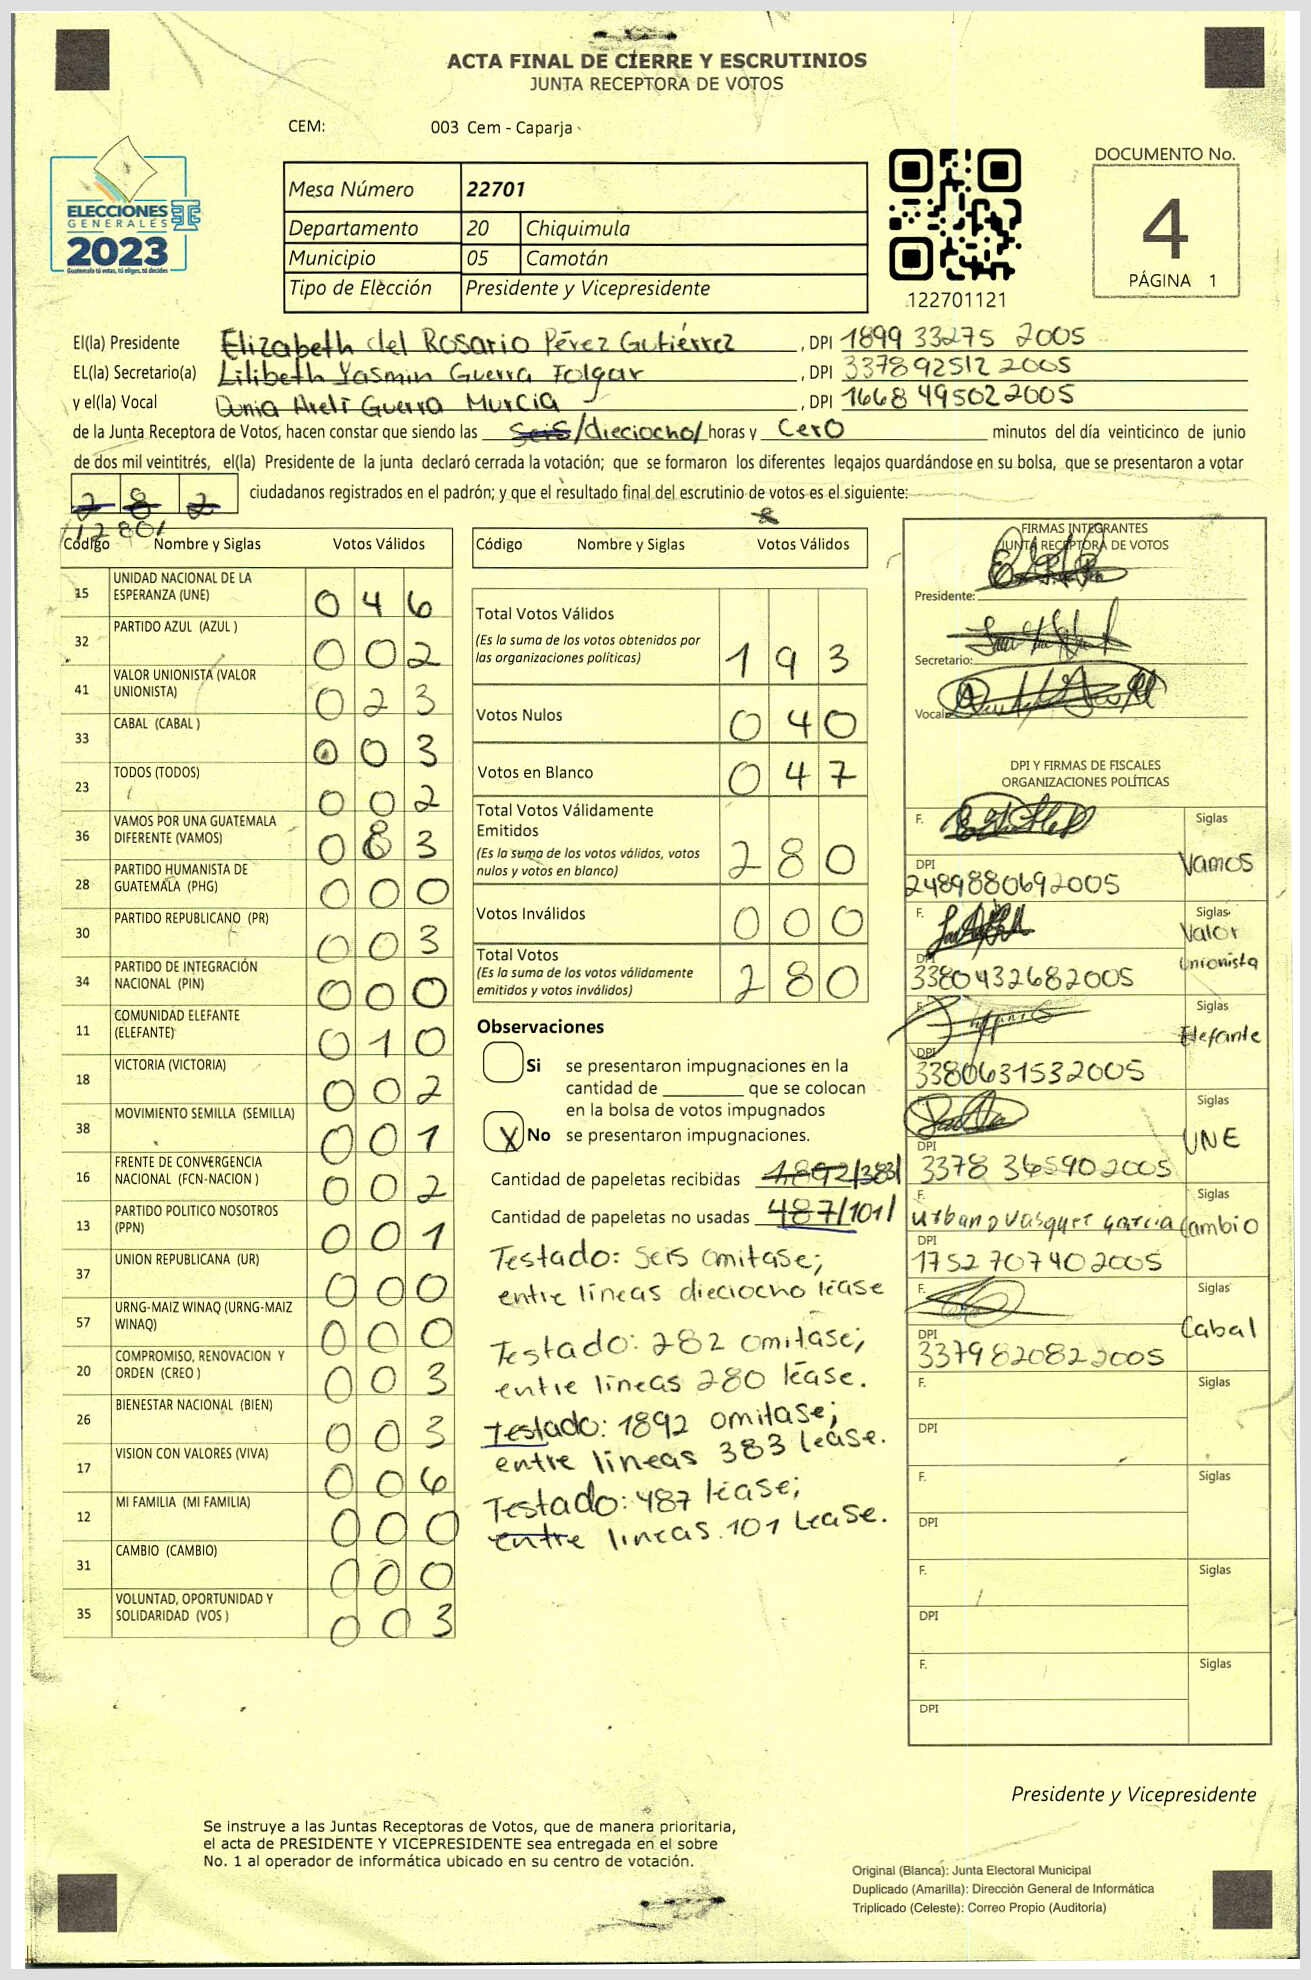 ACTA FINAL DE CIERRE Y ESCRUTINIOS
JUNTA RECEPTORA DE VOTOS
CEM: 003 Cem - Caparja
ELECCIONES
GENERALES
2023
Guatemala tú votas, tú eliges, tú decides
Mesa Número 22701
Departamento 20 Chiquimula
Municipio 05 Camotán
Tipo de Elección Presidente y Vicepresidente
122701121
DOCUMENTO No.
4
PÁGINA 1
El(la) Presidente Elizabeth del Rosario Pérez Gutiérrez, DPI 1899 33275 2005
EL(la) Secretario(a) Lilibeth Yasmin Guerra Folgar, DPI 337892512 2005
y el(la) Vocal Dunia Areli Guerra Murcia, DPI 1668 49502 2005
de la Junta Receptora de Votos, hacen constar que siendo las seis /dieciocho/ horas y cero minutos del día veinticinco de junio
de dos mil veintitrés, el(la) Presidente de la junta declaró cerrada la votación; que se formaron los diferentes legajos guardándose en su bolsa, que se presentaron a votar
2 8 2 ciudadanos registrados en el padrón; y que el resultado final del escrutinio de votos es el siguiente:
/280/
Código Nombre y Siglas Votos Válidos
15 UNIDAD NACIONAL DE LA ESPERANZA (UNE) 0 4 6
32 PARTIDO AZUL (AZUL ) 0 0 2
41 VALOR UNIONISTA (VALOR UNIONISTA) 0 2 3
33 CABAL (CABAL ) 0 0 3
23 TODOS (TODOS) 0 0 2
36 VAMOS POR UNA GUATEMALA DIFERENTE (VAMOS) 0 8 3
28 PARTIDO HUMANISTA DE GUATEMALA (PHG) 0 0 0
30 PARTIDO REPUBLICANO (PR) 0 0 3
34 PARTIDO DE INTEGRACIÓN NACIONAL (PIN) 0 0 0
11 COMUNIDAD ELEFANTE (ELEFANTE) 0 1 0
18 VICTORIA (VICTORIA) 0 0 2
38 MOVIMIENTO SEMILLA (SEMILLA) 0 0 1
16 FRENTE DE CONVERGENCIA NACIONAL (FCN-NACION ) 0 0 2
13 PARTIDO POLITICO NOSOTROS (PPN) 0 0 1
37 UNION REPUBLICANA (UR) 0 0 0
57 URNG-MAIZ WINAQ (URNG-MAIZ WINAQ) 0 0 0
20 COMPROMISO, RENOVACION Y ORDEN (CREO ) 0 0 3
26 BIENESTAR NACIONAL (BIEN) 0 0 3
17 VISION CON VALORES (VIVA) 0 0 6
12 MI FAMILIA (MI FAMILIA) 0 0 0
31 CAMBIO (CAMBIO) 0 0 0
35 VOLUNTAD, OPORTUNIDAD Y SOLIDARIDAD (VOS ) 0 0 3
Código Nombre y Siglas Votos Válidos
Total Votos Válidos
(Es la suma de los votos obtenidos por
las organizaciones políticas) 1 9 3
Votos Nulos 0 4 0
Votos en Blanco 0 4 7
Total Votos Válidamente
Emitidos
(Es la suma de los votos válidos, votos
nulos y votos en blanco) 2 8 0
Votos Inválidos 0 0 0
Total Votos
(Es la suma de los votos válidamente
emitidos y votos inválidos) 2 8 0
Observaciones
Si se presentaron impugnaciones en la
cantidad de ________ que se colocan
en la bolsa de votos impugnados
X No se presentaron impugnaciones.
Cantidad de papeletas recibidas 1892 /383/
Cantidad de papeletas no usadas 487 /101/
Testado: Seis omitase;
entre líneas dieciocho léase
Testado: 282 omitase;
entre líneas 280 léase.
Testado: 1892 omitase;
entre líneas 383 léase.
Testado: 487 léase;
entre líneas 101 Léase.
FIRMAS INTEGRANTES
JUNTA RECEPTORA DE VOTOS
Presidente:
Secretario:
Vocal:
DPI Y FIRMAS DE FISCALES
ORGANIZACIONES POLÍTICAS
F. Siglas
Vamos
DPI
2489880692005
F. Siglas
Valor
Unionista
DPI
3380432682005
F. Siglas
Elefante
DPI
3380631532005
F. Siglas
UNE
DPI
3378 365902005
F. Siglas
Urbano Vasquez Garcia Cambio
DPI
1752 707402005
F. Siglas
Cabal
DPI
3379820822005
F. Siglas
DPI
F. Siglas
DPI
F. Siglas
DPI
F. Siglas
DPI
Presidente y Vicepresidente
Se instruye a las Juntas Receptoras de Votos, que de manera prioritaria,
el acta de PRESIDENTE Y VICEPRESIDENTE sea entregada en el sobre
No. 1 al operador de informática ubicado en su centro de votación.
Original (Blanca): Junta Electoral Municipal
Duplicado (Amarilla): Dirección General de Informática
Triplicado (Celeste): Correo Propio (Auditoria)